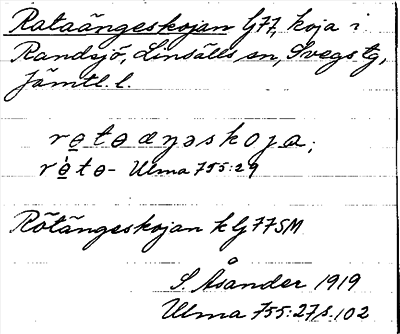 Rataängeskojan G77, koja i
Randsjö, Linsälls sn, Svegs tg,
Jämtl. l.
rɵtɵæŋəskoja;
rɵ́tɵ- Ulma 755:29
Rötängeskojan k G 77 SM
S. Åsander 1919
Ulma 755:27 s. 102